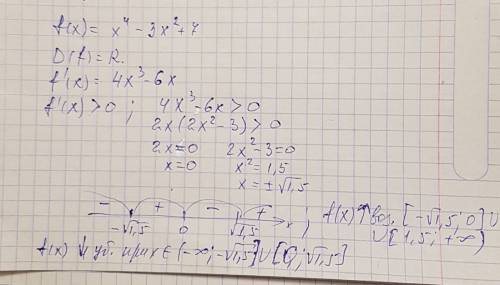 f(x) = x⁴ - 3x² + 7
D(f) = R.
f'(x) = 4x³ - 6x
f'(x) > 0 ; 4x³ - 6x > 0
2x(2x² - 3) > 0
2x = 0 2x² - 3 = 0
x = 0 x² = 1,5
x = ± √1,5
- + - +
-√1,5 0 √1,5 x ; f(x) ↑ воз. [-√1,5; 0] U
U [1,5; +∞)
f(x) ↓ уб. при x ∈ (-∞; -√1,5] U [0; √1,5]